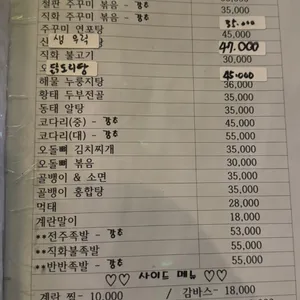 철판 주꾸미 볶음 - 강추
직화 주꾸미 볶음 - 강추 35,000
주꾸미 연포탕 35.000
신 생 우럭 45,000
직화 불고기 47.000
오 닭도리탕 30,000
해물 누룽지탕 45.000
황태 두부전골 36,000
동태 알탕 35,000
코다리(중) - 강추 35,000
코다리(대) - 강추 45,000
오돌뼈 김치찌개 55,000
오돌뼈 볶음 35,000
골뱅이 & 소면 30,000
골뱅이 홍합탕 35,000
먹태 35,000
계란말이 28,000
**전주족발 - 강추 18,000
**직화불족발 53,000
**반반족발 - 강추 55,000
55,000
♡♡ 사이드 메뉴 ♡♡
계란 찜- 10,000 / 감바스- 18,000